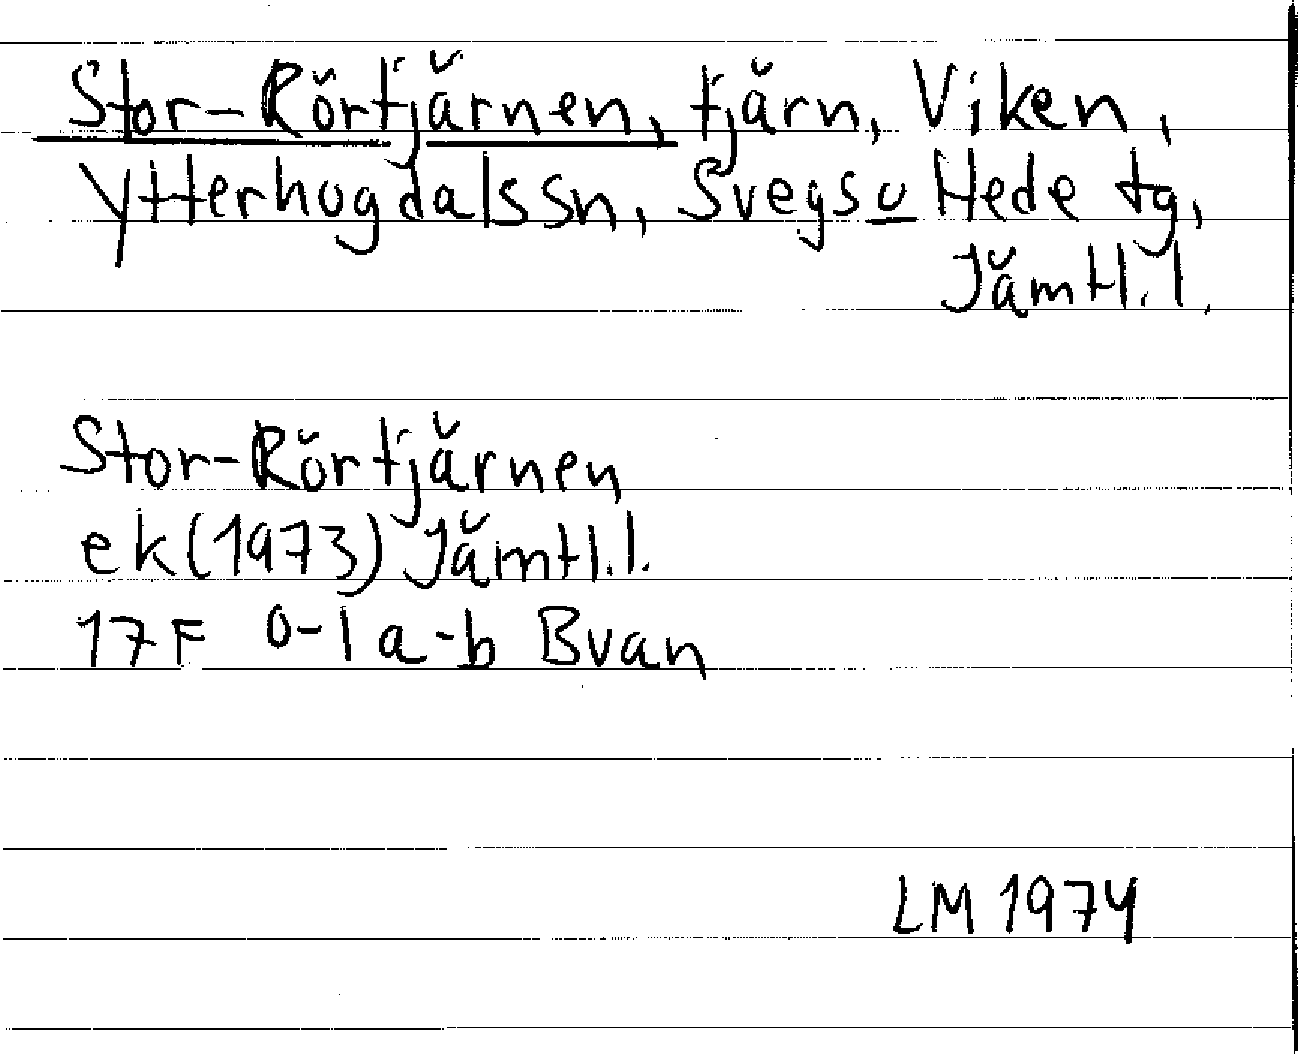 Stor-Rörtjärnen, tjärn, Viken,
Ytterhogdals sn, Svegs o Hede tg,
Jämtl. l.
Stor-Rörtjärnen
ek (1973) Jämtl. l.
17F 0-1 a-b Bvan
LM 1974